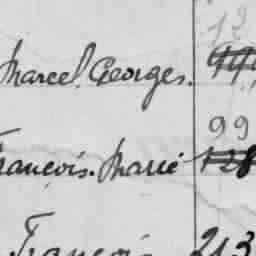 Marcel, Georges.
99
François. Marie 128
François 213